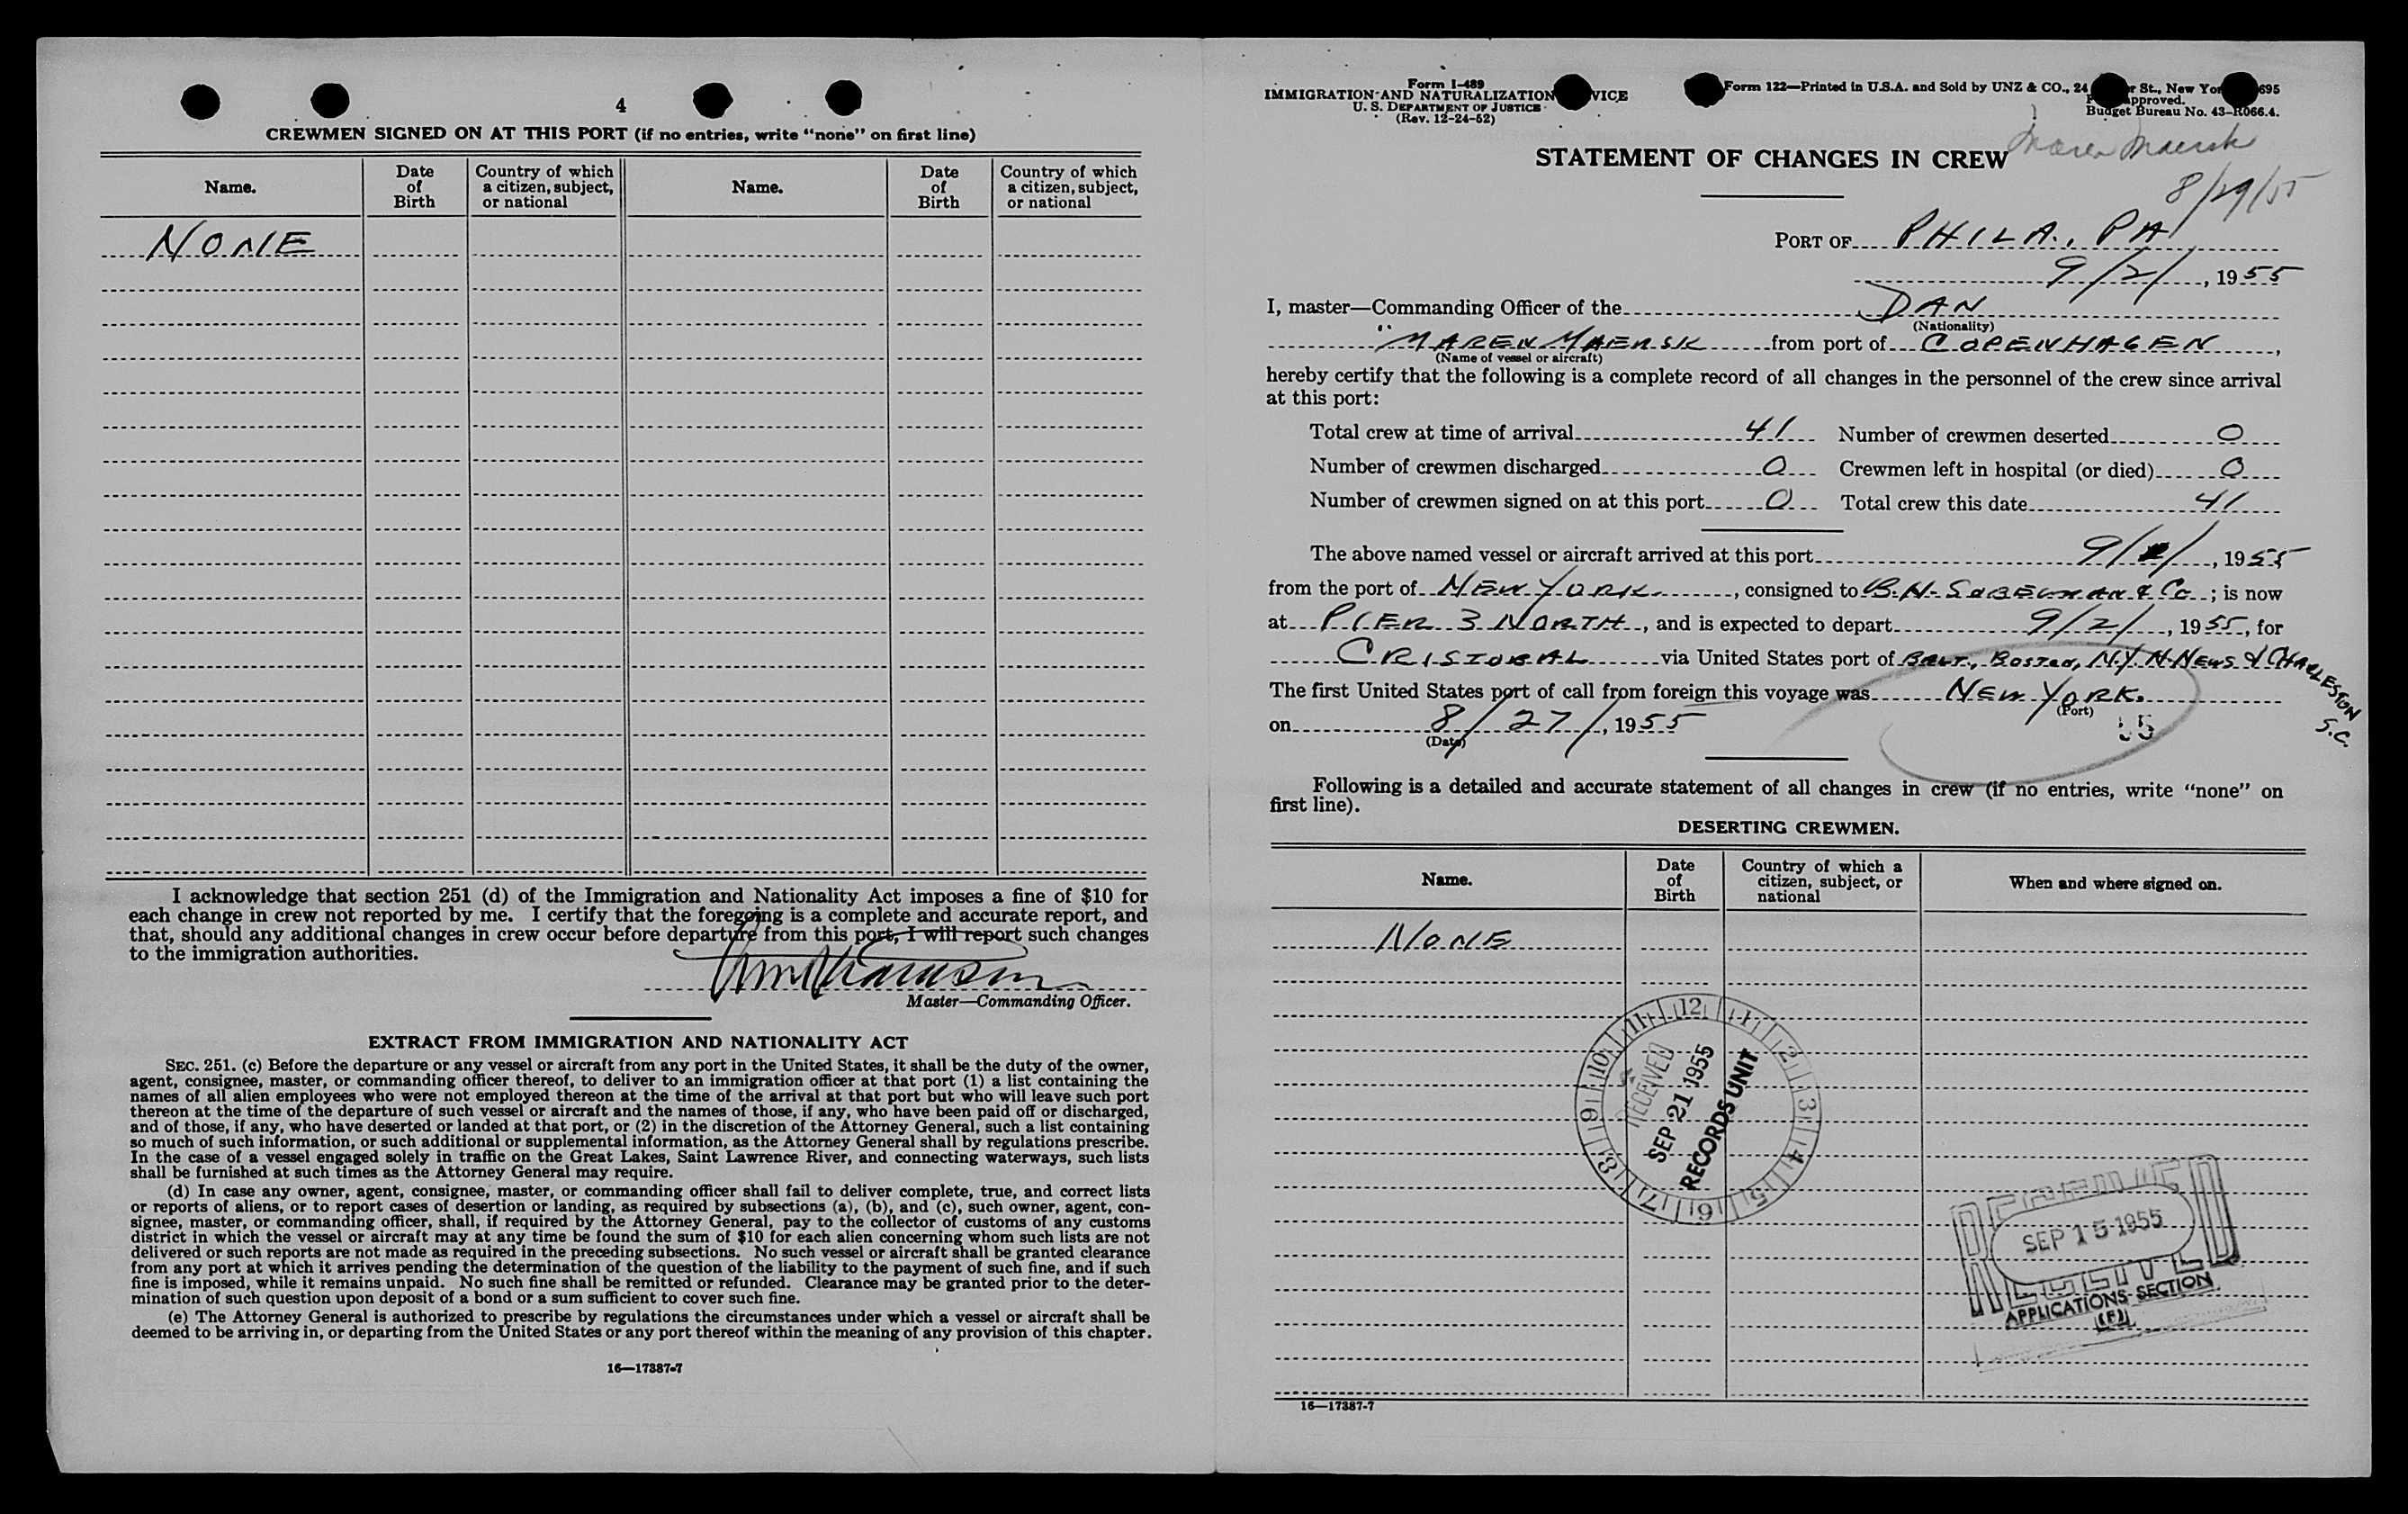 4
CREWMEN SIGNED ON AT THIS PORT (if no entries, write “none” on first line)
Name. Date of Birth Country of which a citizen, subject, or national Name. Date of Birth Country of which a citizen, subject, or national
NONE
I acknowledge that section 251 (d) of the Immigration and Nationality Act imposes a fine of $10 for
each change in crew not reported by me. I certify that the foregoing is a complete and accurate report, and
that, should any additional changes in crew occur before departure from this port, I will report such changes
to the immigration authorities.
Master—Commanding Officer.
EXTRACT FROM IMMIGRATION AND NATIONALITY ACT
SEC. 251. (c) Before the departure or any vessel or aircraft from any port in the United States, it shall be the duty of the owner,
agent, consignee, master, or commanding officer thereof, to deliver to an immigration officer at that port (1) a list containing the
names of all alien employees who were not employed thereon at the time of the arrival at that port but who will leave such port
thereon at the time of the departure of such vessel or aircraft and the names of those, if any, who have been paid off or discharged,
and of those, if any, who have deserted or landed at that port, or (2) in the discretion of the Attorney General, such a list containing
so much of such information, or such additional or supplemental information, as the Attorney General shall by regulations prescribe.
In the case of a vessel engaged solely in traffic on the Great Lakes, Saint Lawrence River, and connecting waterways, such lists
shall be furnished at such times as the Attorney General may require.
(d) In case any owner, agent, consignee, master, or commanding officer shall fail to deliver complete, true, and correct lists
or reports of aliens, or to report cases of desertion or landing, as required by subsections (a), (b), and (c), such owner, agent, con-
signee, master, or commanding officer, shall, if required by the Attorney General, pay to the collector of customs of any customs
district in which the vessel or aircraft may at any time be found the sum of $10 for each alien concerning whom such lists are not
delivered or such reports are not made as required in the preceding subsections. No such vessel or aircraft shall be granted clearance
from any port at which it arrives pending the determination of the question of the liability to the payment of such fine, and if such
fine is imposed, while it remains unpaid. No such fine shall be remitted or refunded. Clearance may be granted prior to the deter-
mination of such question upon deposit of a bond or a sum sufficient to cover such fine.
(e) The Attorney General is authorized to prescribe by regulations the circumstances under which a vessel or aircraft shall be
deemed to be arriving in, or departing from the United States or any port thereof within the meaning of any provision of this chapter.
16—17387-7
Form I-489
IMMIGRATION AND NATURALIZATION VICE
U. S. DEPARTMENT OF JUSTICE
(Rev. 12-24-52)
Form 122—Printed in U.S.A. and Sold by UNZ & CO., 24 St., New Yor 695
approved.
Budget Bureau No. 43-R066.4.
STATEMENT OF CHANGES IN CREW
Maren Maersk
8/29/55
PORT OF PHILA., PA
9/2/, 1955
I, master—Commanding Officer of the DAN
(Nationality)
"MAREN MAERSK from port of COPENHAGEN,
(Name of vessel or aircraft)
hereby certify that the following is a complete record of all changes in the personnel of the crew since arrival
at this port:
Total crew at time of arrival 41 Number of crewmen deserted 0
Number of crewmen discharged 0 Crewmen left in hospital (or died) 0
Number of crewmen signed on at this port 0 Total crew this date 41
The above named vessel or aircraft arrived at this port 9/ /, 1955
from the port of NEW YORK, consigned to B.H. SOBELMAN & Co; is now
at PIER 3 NORTH, and is expected to depart 9/2/, 1955, for
CRISTOBAL via United States port of BALT., BOSTON, N.Y. N-NEWS & CHARLESTON S.C.
The first United States port of call from foreign this voyage was NEW YORK.
(Port)
on 8/27/, 1955
(Date)
55
Following is a detailed and accurate statement of all changes in crew (if no entries, write “none” on
first line).
DESERTING CREWMEN.
Name. Date of Birth Country of which a citizen, subject, or national When and where signed on.
NONE
12 1 2 3 4 5 6 7 8 9 10 11
RECEIVED
SEP 21 1955
RECORDS UNIT
SEP 15 1955
RECEIVED
APPLICATIONS SECTION
16—17387-7